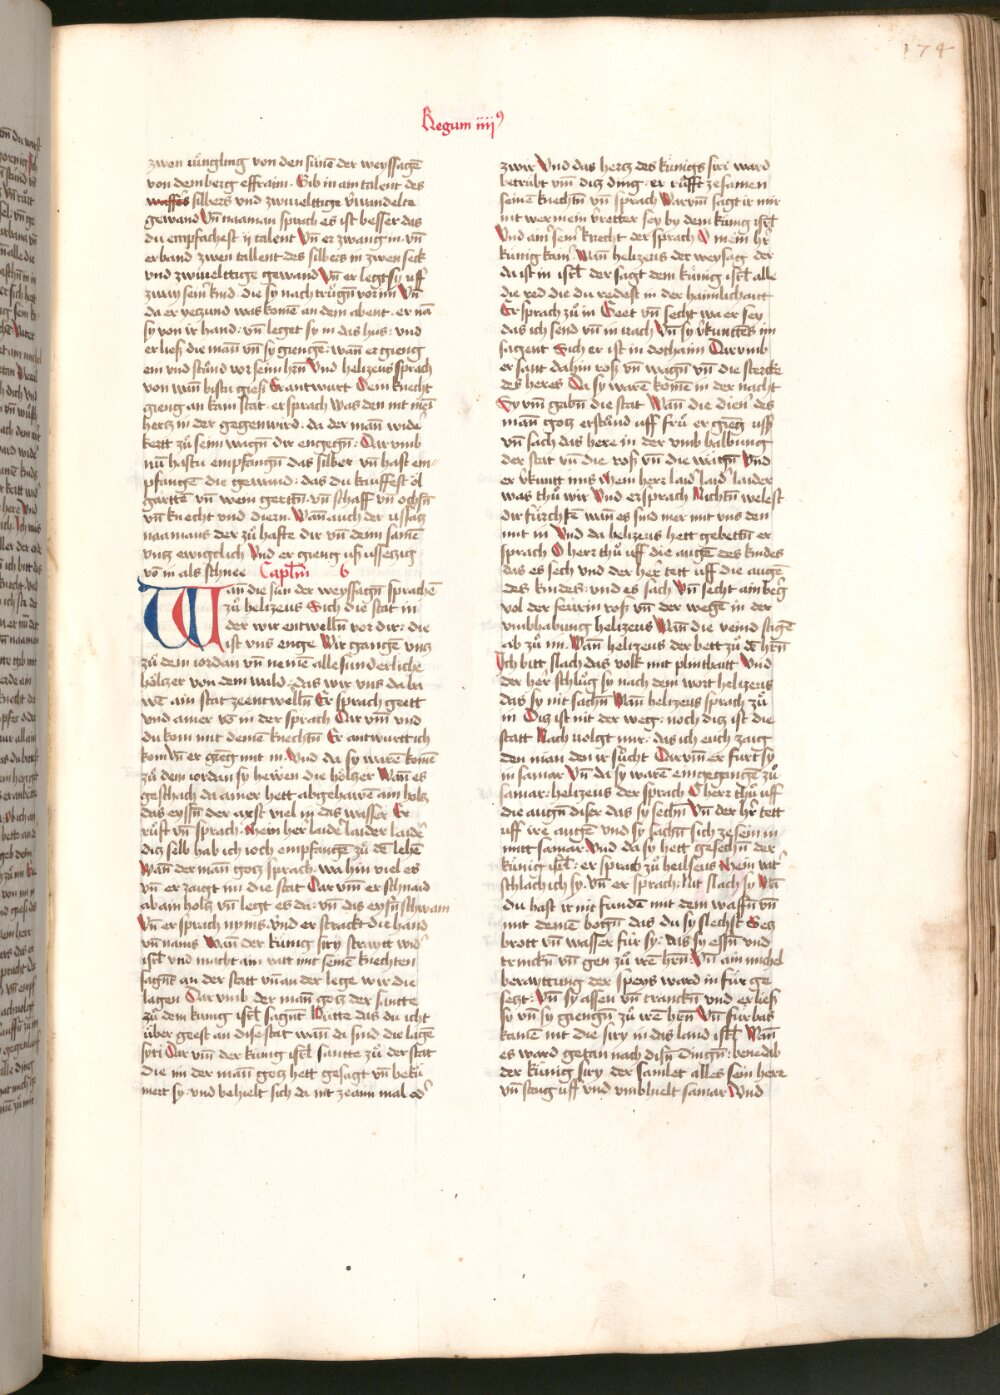 174
Regum iiij⁹
zwen iu̇ngling von den sünē der weyssagē
von dem berg effraim · Gib in ain talent des
waffes silbers vnd zwiuelttige v̓wandelte
gewand Vn̄ naaman sprach es ist besser das
du empfachest ij talent Vn̄ er zwang in · vn̄
er band zwen tallent des silbers in zwen seck
vnd zwiuelttige gewand Vn̄ er legt sy uff
zway sein̓ kind · die sy nach trůgn̄ vor im Vn̄
da er yeczund was komē an dem abent · er nā
sy von ir hand · vn̄ leget sy in das hus · vnd
er ließ die man̄ vn̄ sy giengē · wan̄ er gieng
ein vnd stůnd vor seim hrn̄ Vnd helizeus sprach
von wan̄ bistu giesi Er antwurt Dein knecht
gieng an kain stat · er sprach was den nit mei
hercz in der gegenwird · da der man̄ wider
kertt zů seim wagn̄ dir engegn̄ · Dar vmb
nu̇ hastu empfangn̄ das silber vn̄ hast em-
pfangē die gewand · das du kauffest öl
gärttē vn̄ wein gerttn̄ · vn̄ schaff vn̄ ochsn̄
vn̄ knecht vnd diern · Wan̄ auch der ussacz
naamans der zů hafte dir vn̄ dem samē
vncz ewigclich Vnd er gieng uß usseczig
vō in als schnee Captm̄ 6
Wan die sün der weyssagn̄ sprachē
zů helizeus Sich die stat in
der wir entwelln̄ vor dir · die
ist vns enge Wir gangē vncz
zů dem iordan vn̄ neme alle sunderliche
hölczer von dem wald · das wir vns da ba
wē ain stat ze entwelln̄ Er sprach geett
vnd ainer vō in der sprach Dar vm̄ vnd
du kom mit deinē knechtn̄ Er antwurtt ich
kom Vn̄ er gieng mit in · Vnd da sy warē komē
zů dem iordan sy hewen die hölczer Wan̄ es
geschach da ainer hett abgehawē ain holcz
das eyssn̄ der axst viel in das wasser Er
růft vn̄ sprach · Mein her laider laider laider
dis selb hab ich ioch empfangē zů dē lehē
Wan̄ der man̄ gocz sprach · wa hin viel es
vn̄ er zaigt im die stat Dar vm̄ er schnaid
ab ain holcz vn̄ legt es da · vn̄ das eysn̄ schwam
Vn̄ er sprach nyms · vnd er strackt die hand
vn̄ nams Wan̄ der künig siry straytt wid̓
isrl̄ vnd macht ain ratt mit seinē knechten
sagnt an der statt vn̄ an der lege wir die
lagen Dar vmb der man̄ gocz der santte
zů dem künig isrl̄ sagnt Hütte das du icht
über geest an dise stat wan̄ da sind die lagē
syri Dar vm̄ der künig isrl̄ santte zů der stat
die im der man̄ gocz hett gesagt vn̄ bekü
mert sy · vnd behielt sich da nit ze ainmal od̓
zwir Vnd das hercz des künigs siri ward
betrübt vm̄ dis ding · er růfft ze samen
seine knechtn̄ vn̄ sprach Warvm̄ sagt ir mir
nit wer mein v̓retter sey by dem künig isrl̄
Vnd ain̓ sein̓ knecht der sprach O mein hr̄
künig kain̓ · Wan̄ helizeus der weysag der
da ist in isrl̄ der sagt dem künig isrl̄ alle
die red die du redest in der haimlichait
Er sprach zů in Geet vn̄ secht wa er sey
das ich send vn̄ in vach Vn̄ sy v̓kunttēs im
sagent Sich er ist in dothaim Dar vmb
er sant dahin roß vn̄ wagn̄ vn̄ die stercke
des heres Da sy warē komē in der nacht
Sy vm̄ gabn̄ die stat Wan̄ die dien̓ des
man̄ gocz erstůnd uff frů er gieng uß
vn̄ sach das here in der vmb halbung
der stat vn̄ die roß vn̄ die wagn̄ Vnd
er v̓kunt ims Mein herr laid̓ laid̓ laider
was thů wir Vnd er sprach Nichtn̄ welest
dir fürchtē wan̄ es sind mer mit vns den
mit in Vnd da helizeus hett gebettn̄ er
sprach O herr thů uff die augē des kindes
das es sech vnd der her tett uff die augē
des kindes · vnd es sach Vn̄ secht ain berg
vol der fewrin roß vn̄ der wegē in der
vmbhabung helizeus Wan̄ die veind stigē
ab zů im · Wan̄ helizeus der bett zů dē hrn̄
Ich bitt slach das volk mit plinthaitt Vnd
der her schlůg sy nach dem wort helizeus
das sy nit sachn̄ Wan̄ helizeus sprach zů
in Dis ist nit der weg · noch dis ist die
statt Nach volgt mir · das ich euch zaig
den man den ir sůcht Dar vm̄ er fůrt sy
in samar Vn̄ da sy warē eingegangē zů
samar · helizeus der sprach O herr thů uff
die augn̄ diser das sy sechn̄ Vn̄ der hr̄ tett
uff ire augē vnd sy sachn̄ sich ze sein in
mitt samar Vnd da sy hett gesechn̄ der
künig isrl̄ · er sprach zů heliseus Mein vat̓
schlach ich sy · Vn̄ er sprach · Nit slach sy Wā
du hast ir nit fundē mit dem waffn̄ vn̄
mit deinē bogn̄ das du sy slechst Secz
brott vn̄ wasser für sy · das sy essn̄ vnd
trinckn̄ vn̄ gen zů irē hrn̄ · Vn̄ ain michel
beraittung der speys ward in für ge
seczt · Vn̄ sy assen vn̄ tranckn̄ vnd er ließ
sy vn̄ sy giengn̄ zů irē hrn̄ Vn̄ fürbas
kamē nit die siry in das land isrl̄ Wan̄
es ward getan nach disn̄ dingn̄ · benedab
der künig siry der samlet alles sein here
vn̄ staig uff vnd vmbhielt samar Vnd